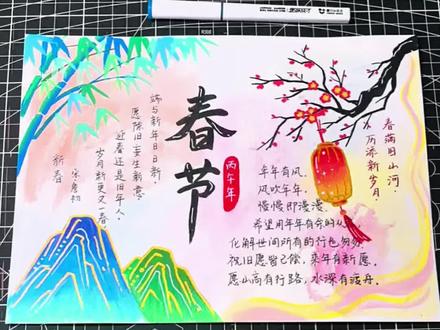 春节
丙午年
端与新年日日新，
愿除旧妄生新意。
迎春还是旧年人，
岁月新更又一春。
宋詹初
新春
春满旧山河，
历添新岁月。
年年有风，
风吹年年，
慢慢即漫漫。
希望用年年有余的
化解世间所有的行色匆匆
祝旧愿皆已偿，来年有新愿。
愿山高有行路，水深有渡舟。